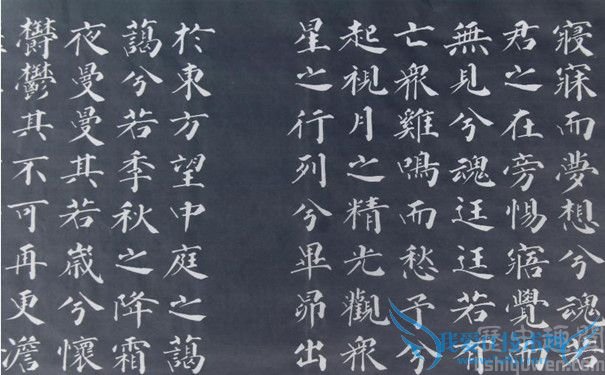 寢寐而夢想兮魂若
君之在旁惕寤覺而
無見兮魂迋迋若有
亡衆雞鳴而愁予兮
起視月之精光觀衆
星之行列兮畢昴出
於東方望中庭之藹
藹兮若季秋之降霜
夜曼曼其若歲兮懷
鬱鬱其不可再更澹
shiquwen.com